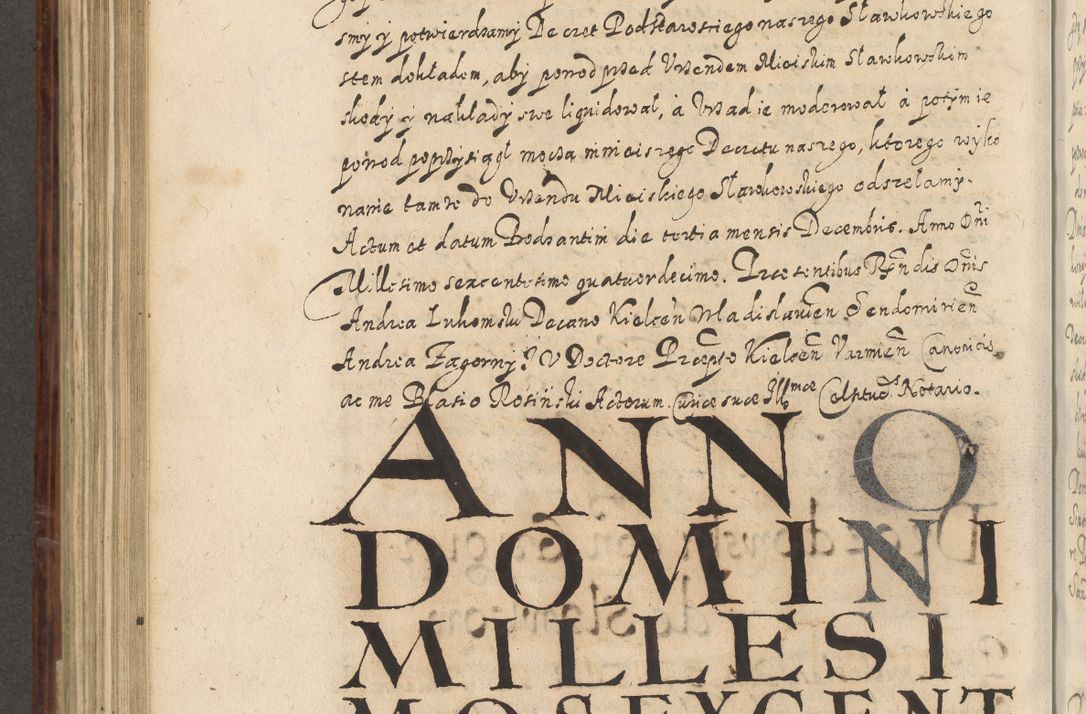 smy y potwierdzamy Decret Podstarosciego naszego Sławkowskiego
stem dokładem, aby powod przed Vrzendem Mieiskim Sławkowskim
skody y nakłady swe liquidował, à Vrzad ie moderował à potym ie
powod poprzysiągł mocza ninieiszego Decretu naszego, ktorego wyko
nanie tamże do Vrzendu Mieiskiego Sławkowskiego odszełamy.
Actum et datum Bodzantin die tertia mensis Decembris. Anno Dni
Millesimo sexcentesimo quatuordecimo. Præsentibus Rndis Dnis
Andrea Lukomski Decano Kielcen Wladislavien Sendomirien
Andrea Zagorny I V Doctore Præpto Kielcen Varmien Canonicis
ac me Blasio Rosiński Actorum Curiæ suæ Illmæ Celsitud. Notario.
ANNO
DOMINI
MILLESI
MOSEXCENT